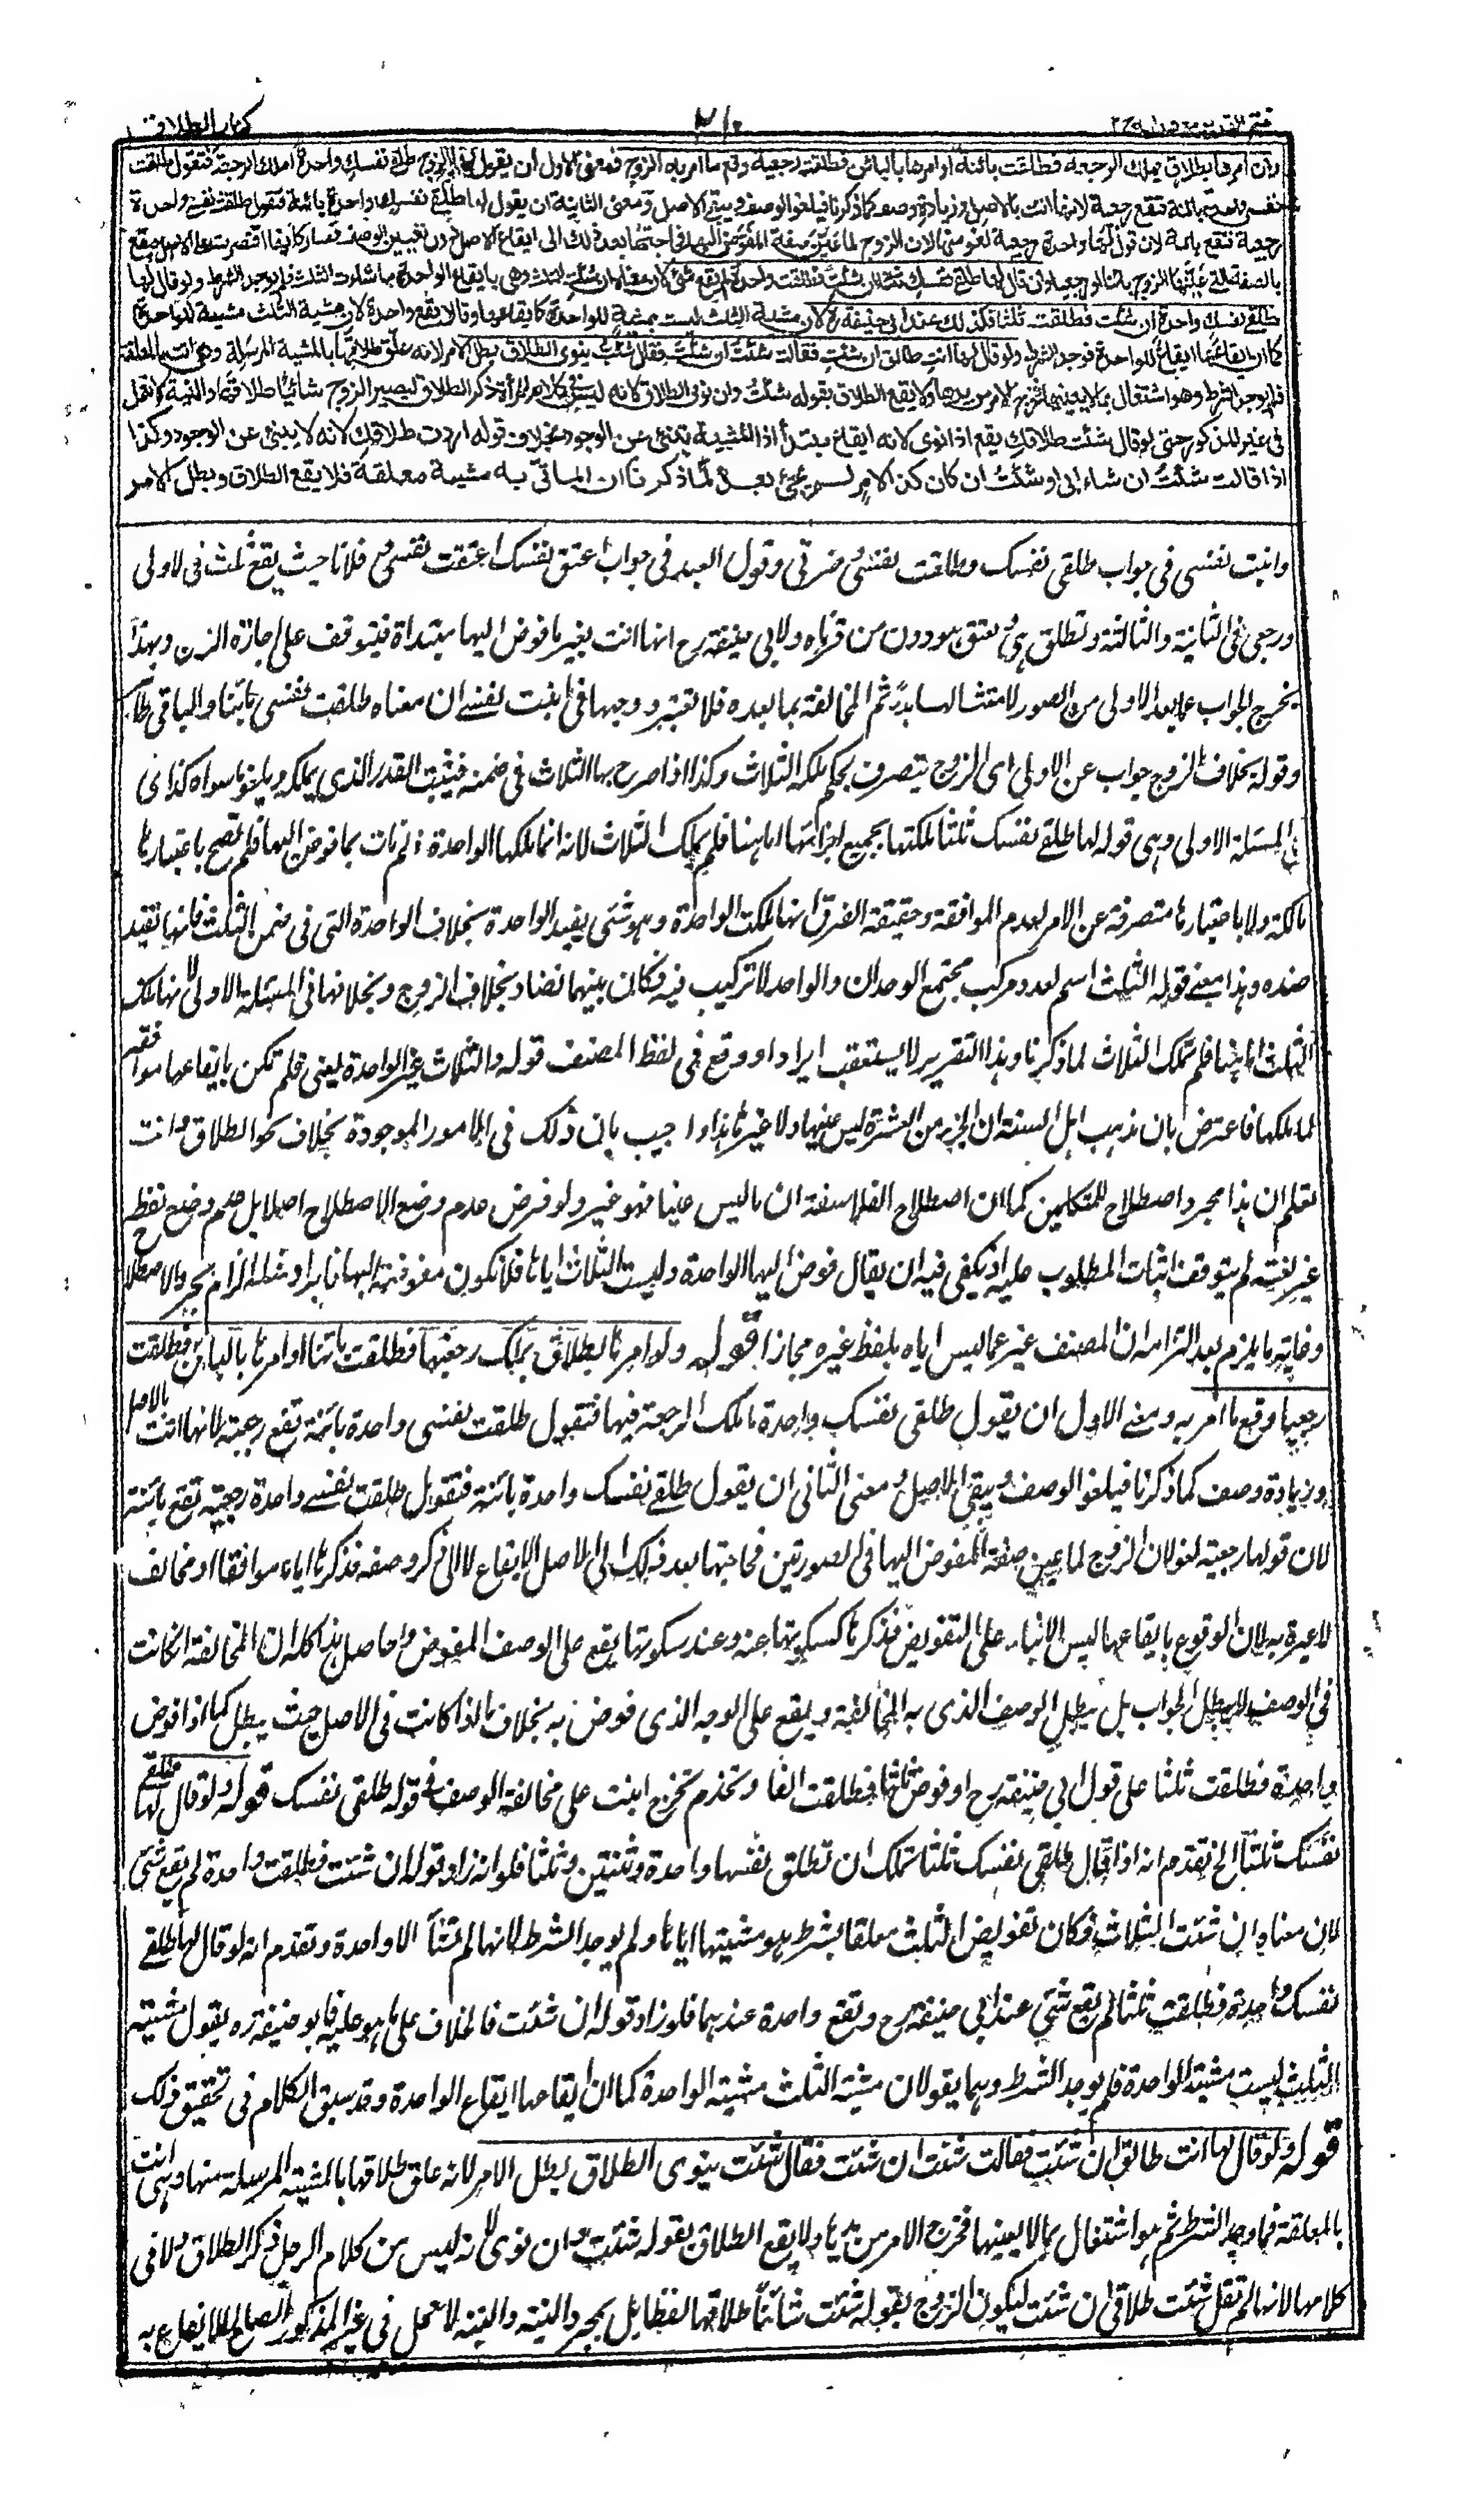 كتاب الطلاق
وان امرها بطلاق يملك الرجعة فطلقت بائنة او امرها بالبائن فطلقت رجعية وقع ما امر به الزوج فمعنى الاول ان يقول لها الزوج طلقي نفسك واحدة املك الرجعة فتقول طلقت
نفسي واحدة بائنة فتقع رجعية لانها اتت بالاصل وزيادة وصف كما ذكرنا فيلغو الوصف ويبقى الاصل ومعنى الثانية ان يقول لها طلقي نفسك واحدة بائنة فتقول طلقت نفسي واحدة
رجعية فتقع بائنة لان قولها واحدة رجعية لغو منها لان الزوج لما عين صفة المفوض اليها فحاجتها بعد ذلك الى ايقاع الاصل دون تعيين الوصف فصار كانها اقتصرت على الاصل فيقع
بالصفة التي عينها الزوج بائنا او رجعيا وان قال لها طلقي نفسك ثلثا ان شئت فطلقت واحدة لم يقع شئ لان معناه ان شئت الثلث وهي بايقاع الواحدة ما شاءت الثلث فلم يوجد الشرط ولو قال لها
طلقي نفسك واحدة ان شئت فطلقت ثلثا فكذلك عند ابي حنيفة ره لان مشية الثلث ليست بمشية للواحدة كايقاعها وقالا تقع واحدة لان مشية الثلث مشية للواحدة
كما ان ايقاعها ايقاع للواحدة فوجد الشرط ولو قال لها انت طالق ان شئت فقالت شئت ان شئت فقال شئت ينوي الطلاق بطل الامر لانه علق طلاقها بالمشية المرسلة وهي اتت بالمعلقة
فلم يوجد الشرط وهو اشتغال بما لا يعنيها فخرج الامر من يدها ولا يقع الطلاق بقوله شئت وان نوى الطلاق لانه ليس في كلام المرأة ذكر الطلاق ليصير الزوج شائيا طلاقها والنية لا تعمل
في غير المذكور حتى لو قال شئت طلاقك يقع اذا نوى لانه ايقاع مبتدأ اذ المشية تنبئ عن الوجود بخلاف قوله اردت طلاقك لانه لا ينبئ عن الوجود وكذا
اذا قالت شئت ان شاء ابي او شئت ان كان كذا لامر لم يجئ بعد لما ذكرنا ان الماتي به مشية معلقة فلا يقع الطلاق وبطل الامر
وابنت نفسي في جواب طلقي نفسك وطلقت نفسي وضرتي وقول العبد في جواب اعتق نفسك اعتقت نفسي وفلانا حيث يقع ثلث في الاولى
ورجعي في الثانية والثالثة وتطلق هي ويعتق هو دون من قرناه ولابي حنيفة رح انها اتت بغير ما فوض اليها مبتداة فيتوقف على اجازة الزوج وبهذا
يخرج الجواب عما بعد الاولى من الصور لامتثالها بدءا ثم المخالفة بما بعده فلا تعتبر ووجهها في ابنت نفسي ان معناه طلقت نفسي بائنا والباقي ظاهر
وقوله بخلاف الزوج جواب عن الاولى اي الزوج يتصرف بحكم ملكه الثلاث وكذا اذا صرح بها الثلاث في ضمنه فيثبت القدر الذي يملكه ويلغو ما سواه كذا في
في المسئلة الاولى وهي قوله لها طلقي نفسك ثلثا ملكتها بجميع اجزائها اما هنا فلم يملك الثلاث لانه انما ملكها الواحدة ولم تات بما فوض اليها فلم تصح باعتبارها
مالكة ولا باعتبارها متصرفة عن الامر لعدم الموافقة وحقيقة الفرق انها ملكت الواحدة وهو شئ يفيد الواحدة بخلاف الواحدة التي في ضمن الثلث فانها تفيد
ضده وهذا معنى قوله الثلث اسم لعدد مركب مجتمع الوحدان والواحد لا تركيب فيه فكان بينهما تضاد بخلاف الزوج وبخلافها في المسئلة الاولى لانها ملكت
الثلث اما هنا فلم تملك الثلاث لما ذكرنا وهذا التقرير لا يستعقب ايرادا ووقع في لفظ المصنف قوله والثلاث غير الواحدة يعني فلم تكن بايقاعها موافقة
لما ملكها فاعترض بان مذهب اهل السنة ان الجزء من العشرة ليس عينها ولا غيرها هذا واجيب بان ذلك في الامور الموجودة بخلاف نحو الطلاق وانت
تعلم ان هذا مجرد اصطلاح للمتكلمين كما ان اصطلاح الفلاسفة ان ما ليس عينا فهو غير ولو فرض عدم وضع الاصطلاح اصلا بل عدم وضع لفظ
غير لغة لم يتوقف اثبات المطلوب عليه اذ يكفي فيه ان يقال فوض اليها الواحدة وليست الثلاث اياها فلا تكون مفوضة اليها فايراد مثله الزام بمجرد الاصطلاح
وغايته ما يلزم بعد التزامه ان المصنف عبر عما ليس اياه بلفظ غيره مجازا قوله ولو امرها بطلاق يملك رجعتها فطلقت بائنا او امرها بالبائن فطلقت
رجعيا وقع ما امر به ومعنى الاول ان يقول طلقي نفسك واحدة املك الرجعة فيها فتقول طلقت نفسي واحدة بائنة تقع رجعية لانها اتت بالاصل
وزيادة وصف كما ذكرنا فيلغو الوصف ويبقى الاصل ومعنى الثاني ان يقول طلقي نفسك واحدة بائنة فتقول طلقت نفسي واحدة رجعية تقع بائنة
لان قولها رجعية لغو لان الزوج لما عين صفة المفوض اليها في الصورتين فحاجتها بعد ذلك الى الاصل الايقاع لا الى ذكر وصفه فذكرها اياه موافقا او مخالف
لا عبرة به لان الوقوع بايقاعها ليس الا بناء على التفويض فذكرها كسكوتها عنه وعند سكوتها يقع على الوصف المفوض وحاصل هذا كله ان المخالفة ان كانت
في الوصف لا يبطل الجواب بل يبطل الوصف الذي به المخالفة ويقع على الوجه الذي فوض به بخلاف ما اذا كانت في الاصل حيث يبطل كما اذا فوض
واحدة فطلقت ثلثا على قول ابي حنيفة رح او فوض ثلثا فطلقت الفا وتقدم تخريج ابنت على مخالفة الوصف في قوله طلقي نفسك قوله ولو قال لها طلقي
نفسك ثلثا الخ تقدم انه اذا قال طلقي نفسك ثلثا تملك ان تطلق نفسها واحدة وثنتين وثلثا فلو انه زاد قوله ان شئت فطلقت واحدة لم يقع شئ
لان معناه ان شئت الثلاث فكان تفويض الثلث معلقا بشرط هو مشيتها اياها ولم يوجد الشرط لانها لم تشأ الا واحدة وتقدم انه لو قال لها طلقي
نفسك واحدة فطلقت ثلثا لم يقع شئ عند ابي حنيفة رح وتقع واحدة عندهما فلو زاد قوله ان شئت فالخلاف على ما هو عليه فابو حنيفة ره يقول مشية
الثلث ليست مشية الواحدة فلم يوجد الشرط وهما يقولان مشية الثلث مشية الواحدة كما ان ايقاعها ايقاع الواحدة وقد سبق الكلام في تحقيق ذلك
قوله ولو قال لها انت طالق ان شئت فقالت شئت ان شئت فقال شئت ينوي الطلاق بطل الامر لانه علق طلاقها بالمشية المرسلة منها وهي اتت
بالمعلقة فما وجد الشرط ثم هو اشتغال بما لا يعنيها فخرج الامر من يدها ولا يقع الطلاق بقوله شئت وان نوى لانه ليس من كلام الرجل ذكر الطلاق ولا في
كلامها لانها لم تقل شئت طلاقي ان شئت ليكون الزوج بقوله شئت شائيا طلاقها لفظا بل بمجرد النية والنية لا تعمل في غير المذكور الصالح للايقاع به